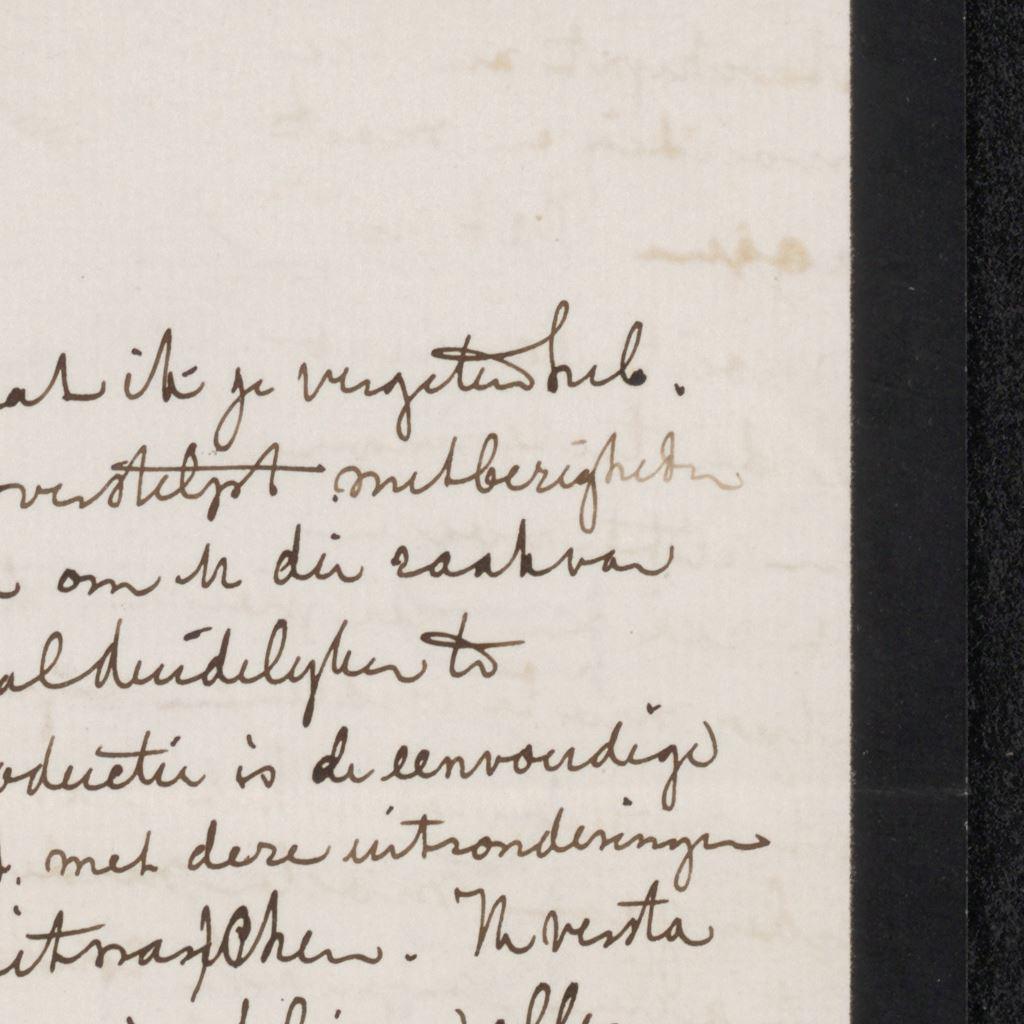 ik je vergeten heb.
overstelpt met bezigheden
om U die zaak van
al duidelyker te
oductie is de eenvoudige
met deze uitzonderingen
Ik versta